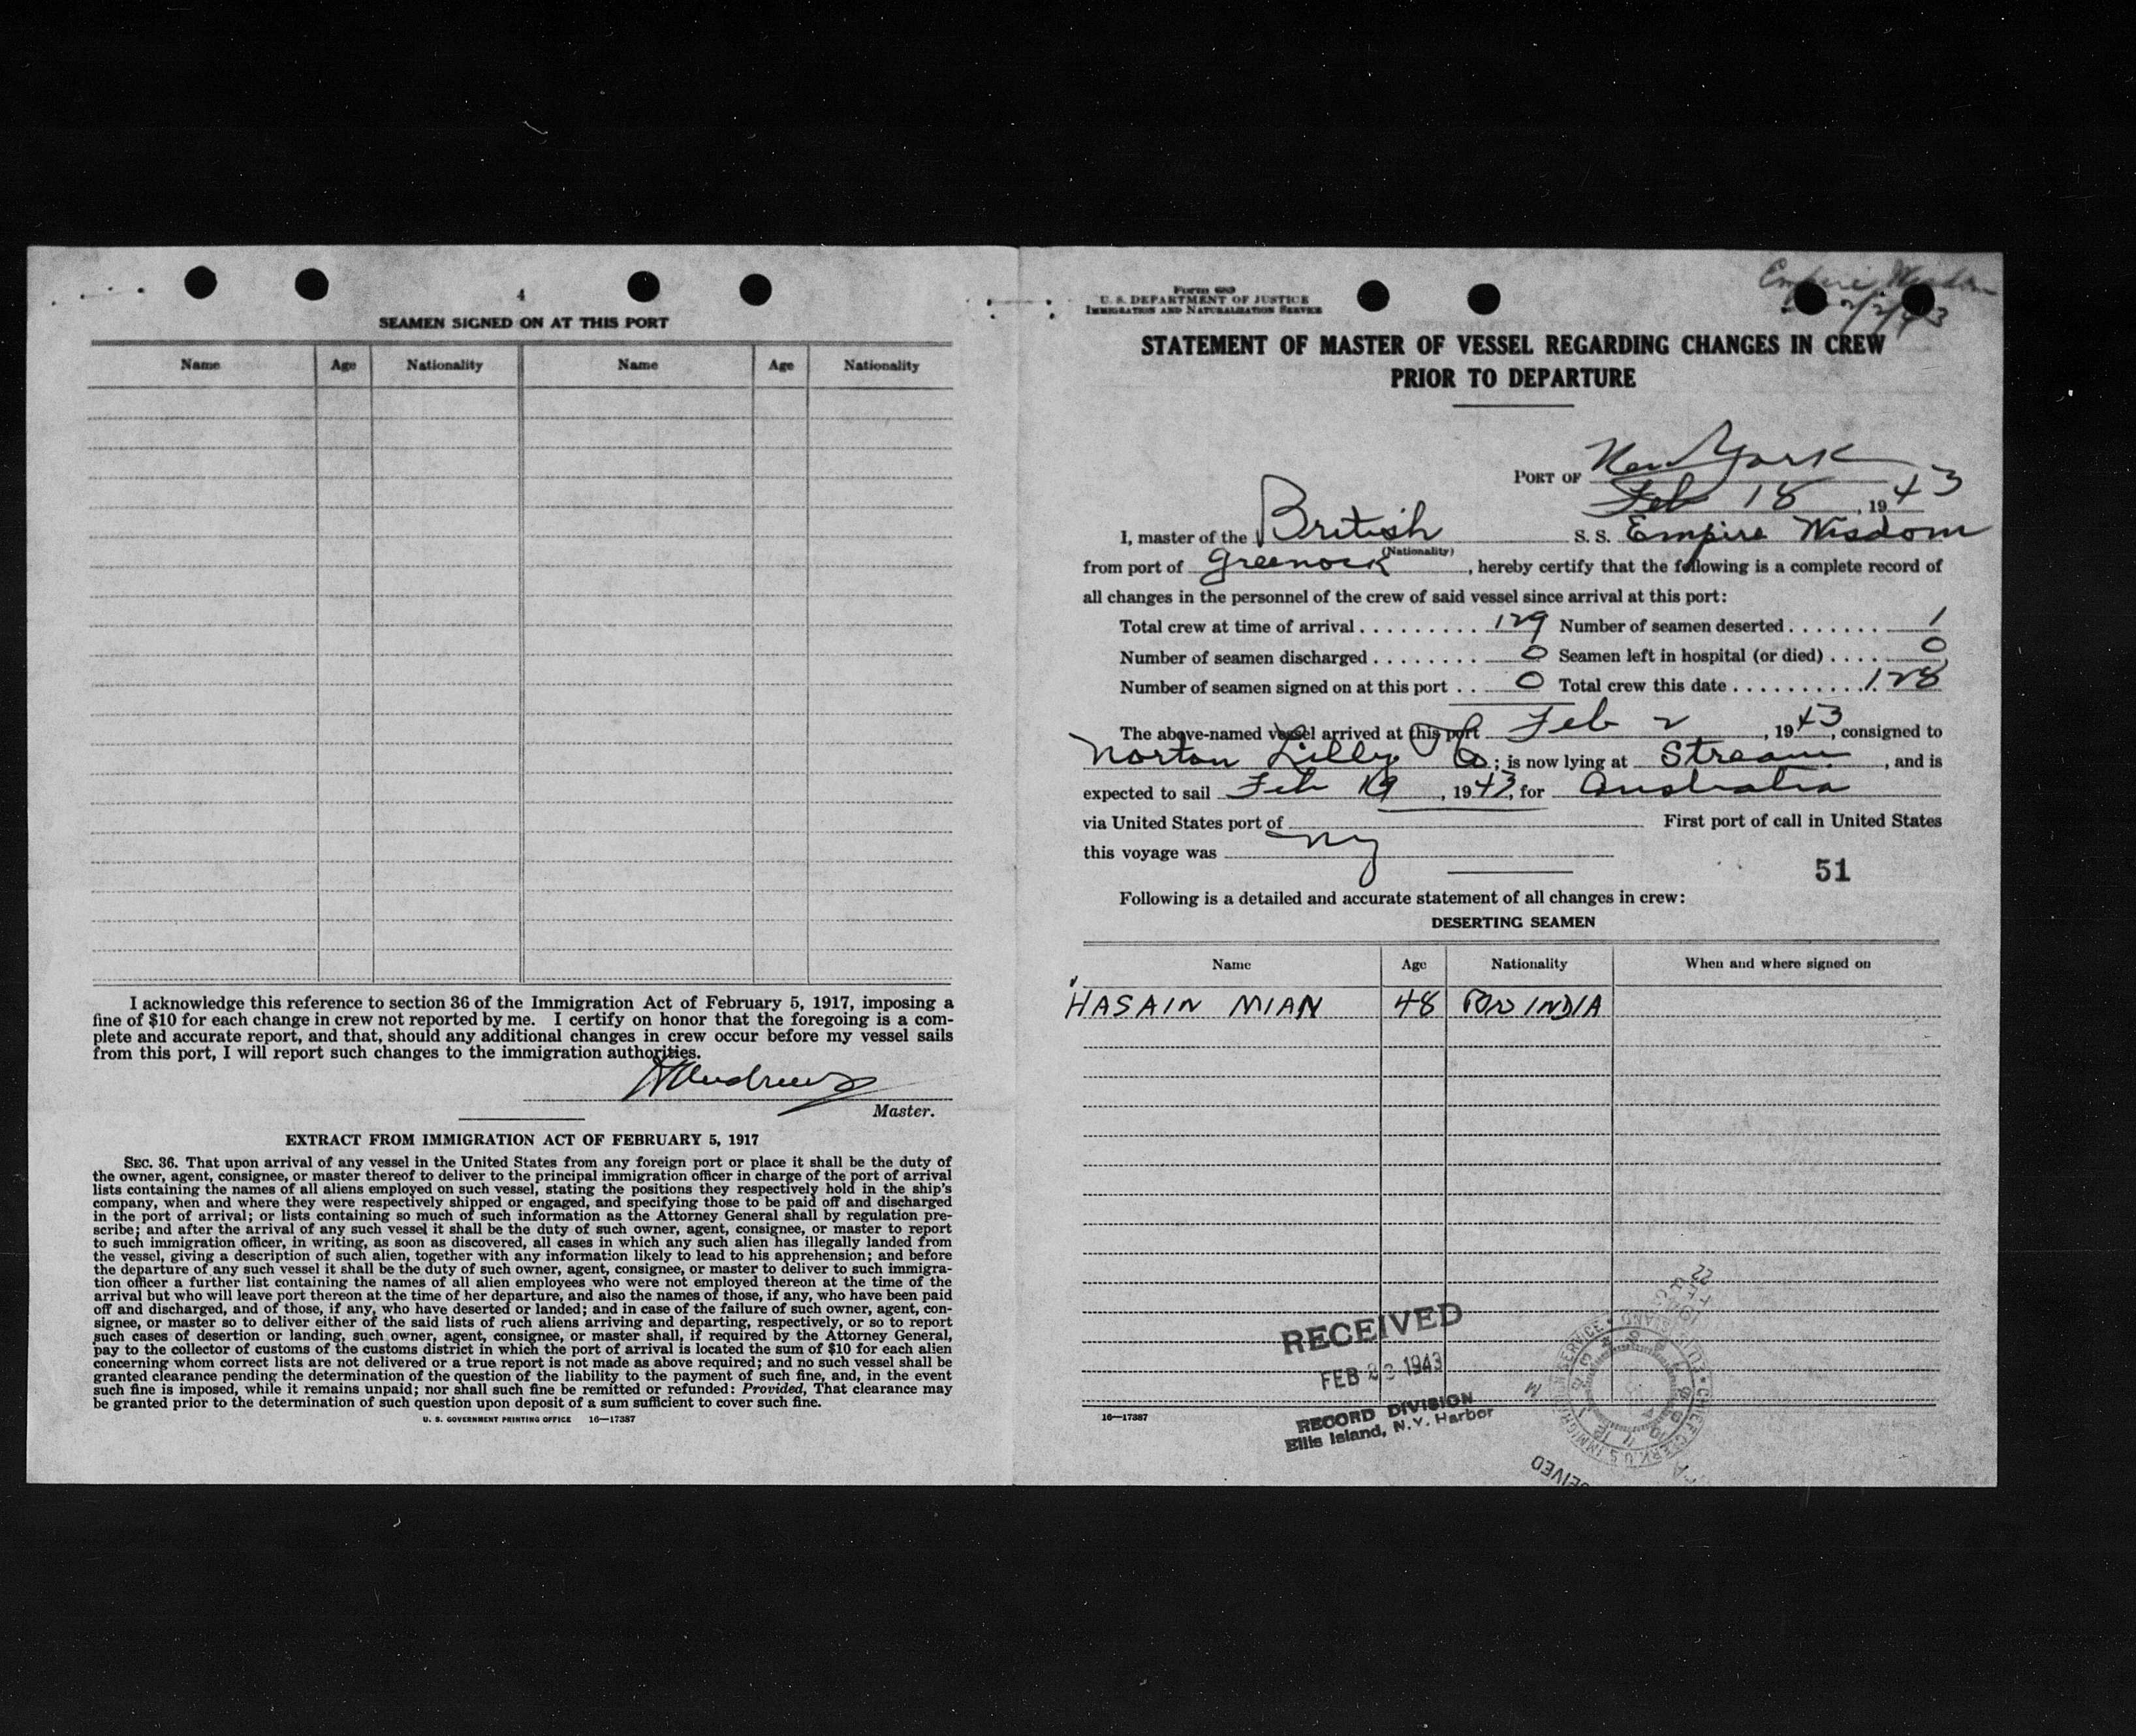 4
SEAMEN SIGNED ON AT THIS PORT
Name Age Nationality Name Age Nationality
I acknowledge this reference to section 36 of the Immigration Act of February 5, 1917, imposing a
fine of $10 for each change in crew not reported by me. I certify on honor that the foregoing is a com-
plete and accurate report, and that, should any additional changes in crew occur before my vessel sails
from this port, I will report such changes to the immigration authorities.
Andrews
Master.
EXTRACT FROM IMMIGRATION ACT OF FEBRUARY 5, 1917
SEC. 36. That upon arrival of any vessel in the United States from any foreign port or place it shall be the duty of
the owner, agent, consignee, or master thereof to deliver to the principal immigration officer in charge of the port of arrival
lists containing the names of all aliens employed on such vessel, stating the positions they respectively hold in the ship's
company, when and where they were respectively shipped or engaged, and specifying those to be paid off and discharged
in the port of arrival; or lists containing so much of such information as the Attorney General shall by regulation pre-
scribe; and after the arrival of any such vessel it shall be the duty of such owner, agent, consignee, or master to report
to such immigration officer, in writing, as soon as discovered, all cases in which any such alien has illegally landed from
the vessel, giving a description of such alien, together with any information likely to lead to his apprehension; and before
the departure of any such vessel it shall be the duty of such owner, agent, consignee, or master to deliver to such immigra-
tion officer a further list containing the names of all alien employees who were not employed thereon at the time of the
arrival but who will leave port thereon at the time of her departure, and also the names of those, if any, who have been paid
off and discharged, and of those, if any, who have deserted or landed; and in case of the failure of such owner, agent, con-
signee, or master so to deliver either of the said lists of ruch aliens arriving and departing, respectively, or so to report
such cases of desertion or landing, such owner, agent, consignee, or master shall, if required by the Attorney General,
pay to the collector of customs of the customs district in which the port of arrival is located the sum of $10 for each alien
concerning whom correct lists are not delivered or a true report is not made as above required; and no such vessel shall be
granted clearance pending the determination of the question of the liability to the payment of such fine, and, in the event
such fine is imposed, while it remains unpaid; nor shall such fine be remitted or refunded: Provided, That clearance may
be granted prior to the determination of such question upon deposit of a sum sufficient to cover such fine.
U. S. GOVERNMENT PRINTING OFFICE 16—17387
Empire Wisdom
2/2/43
Form 689
U. S. DEPARTMENT OF JUSTICE
IMMIGRATION AND NATURALIZATION SERVICE
STATEMENT OF MASTER OF VESSEL REGARDING CHANGES IN CREW
PRIOR TO DEPARTURE
PORT OF New York
Feb 18, 1943
I, master of the British S. S. Empire Wisdom
(Nationality)
from port of Greenock, hereby certify that the following is a complete record of
all changes in the personnel of the crew of said vessel since arrival at this port:
Total crew at time of arrival . . . . . . . . . . 129 Number of seamen deserted . . . . . . . 1
Number of seamen discharged . . . . . . . . . 0 Seamen left in hospital (or died) . . . . 0
Number of seamen signed on at this port . . 0 Total crew this date . . . . . . . . . . . 128
The above-named vessel arrived at this port Feb 2, 1943, consigned to
Norton Lilly Co; is now lying at Stream, and is
expected to sail Feb 19, 1943, for Australia
via United States port of First port of call in United States
this voyage was NY
51
Following is a detailed and accurate statement of all changes in crew:
DESERTING SEAMEN
Name Age Nationality When and where signed on
HASAIN MIAN 48 INDIA
RECEIVED
FEB 1943
RECORD DIVISION
Ellis Island, N.Y. Harbor
16—17387